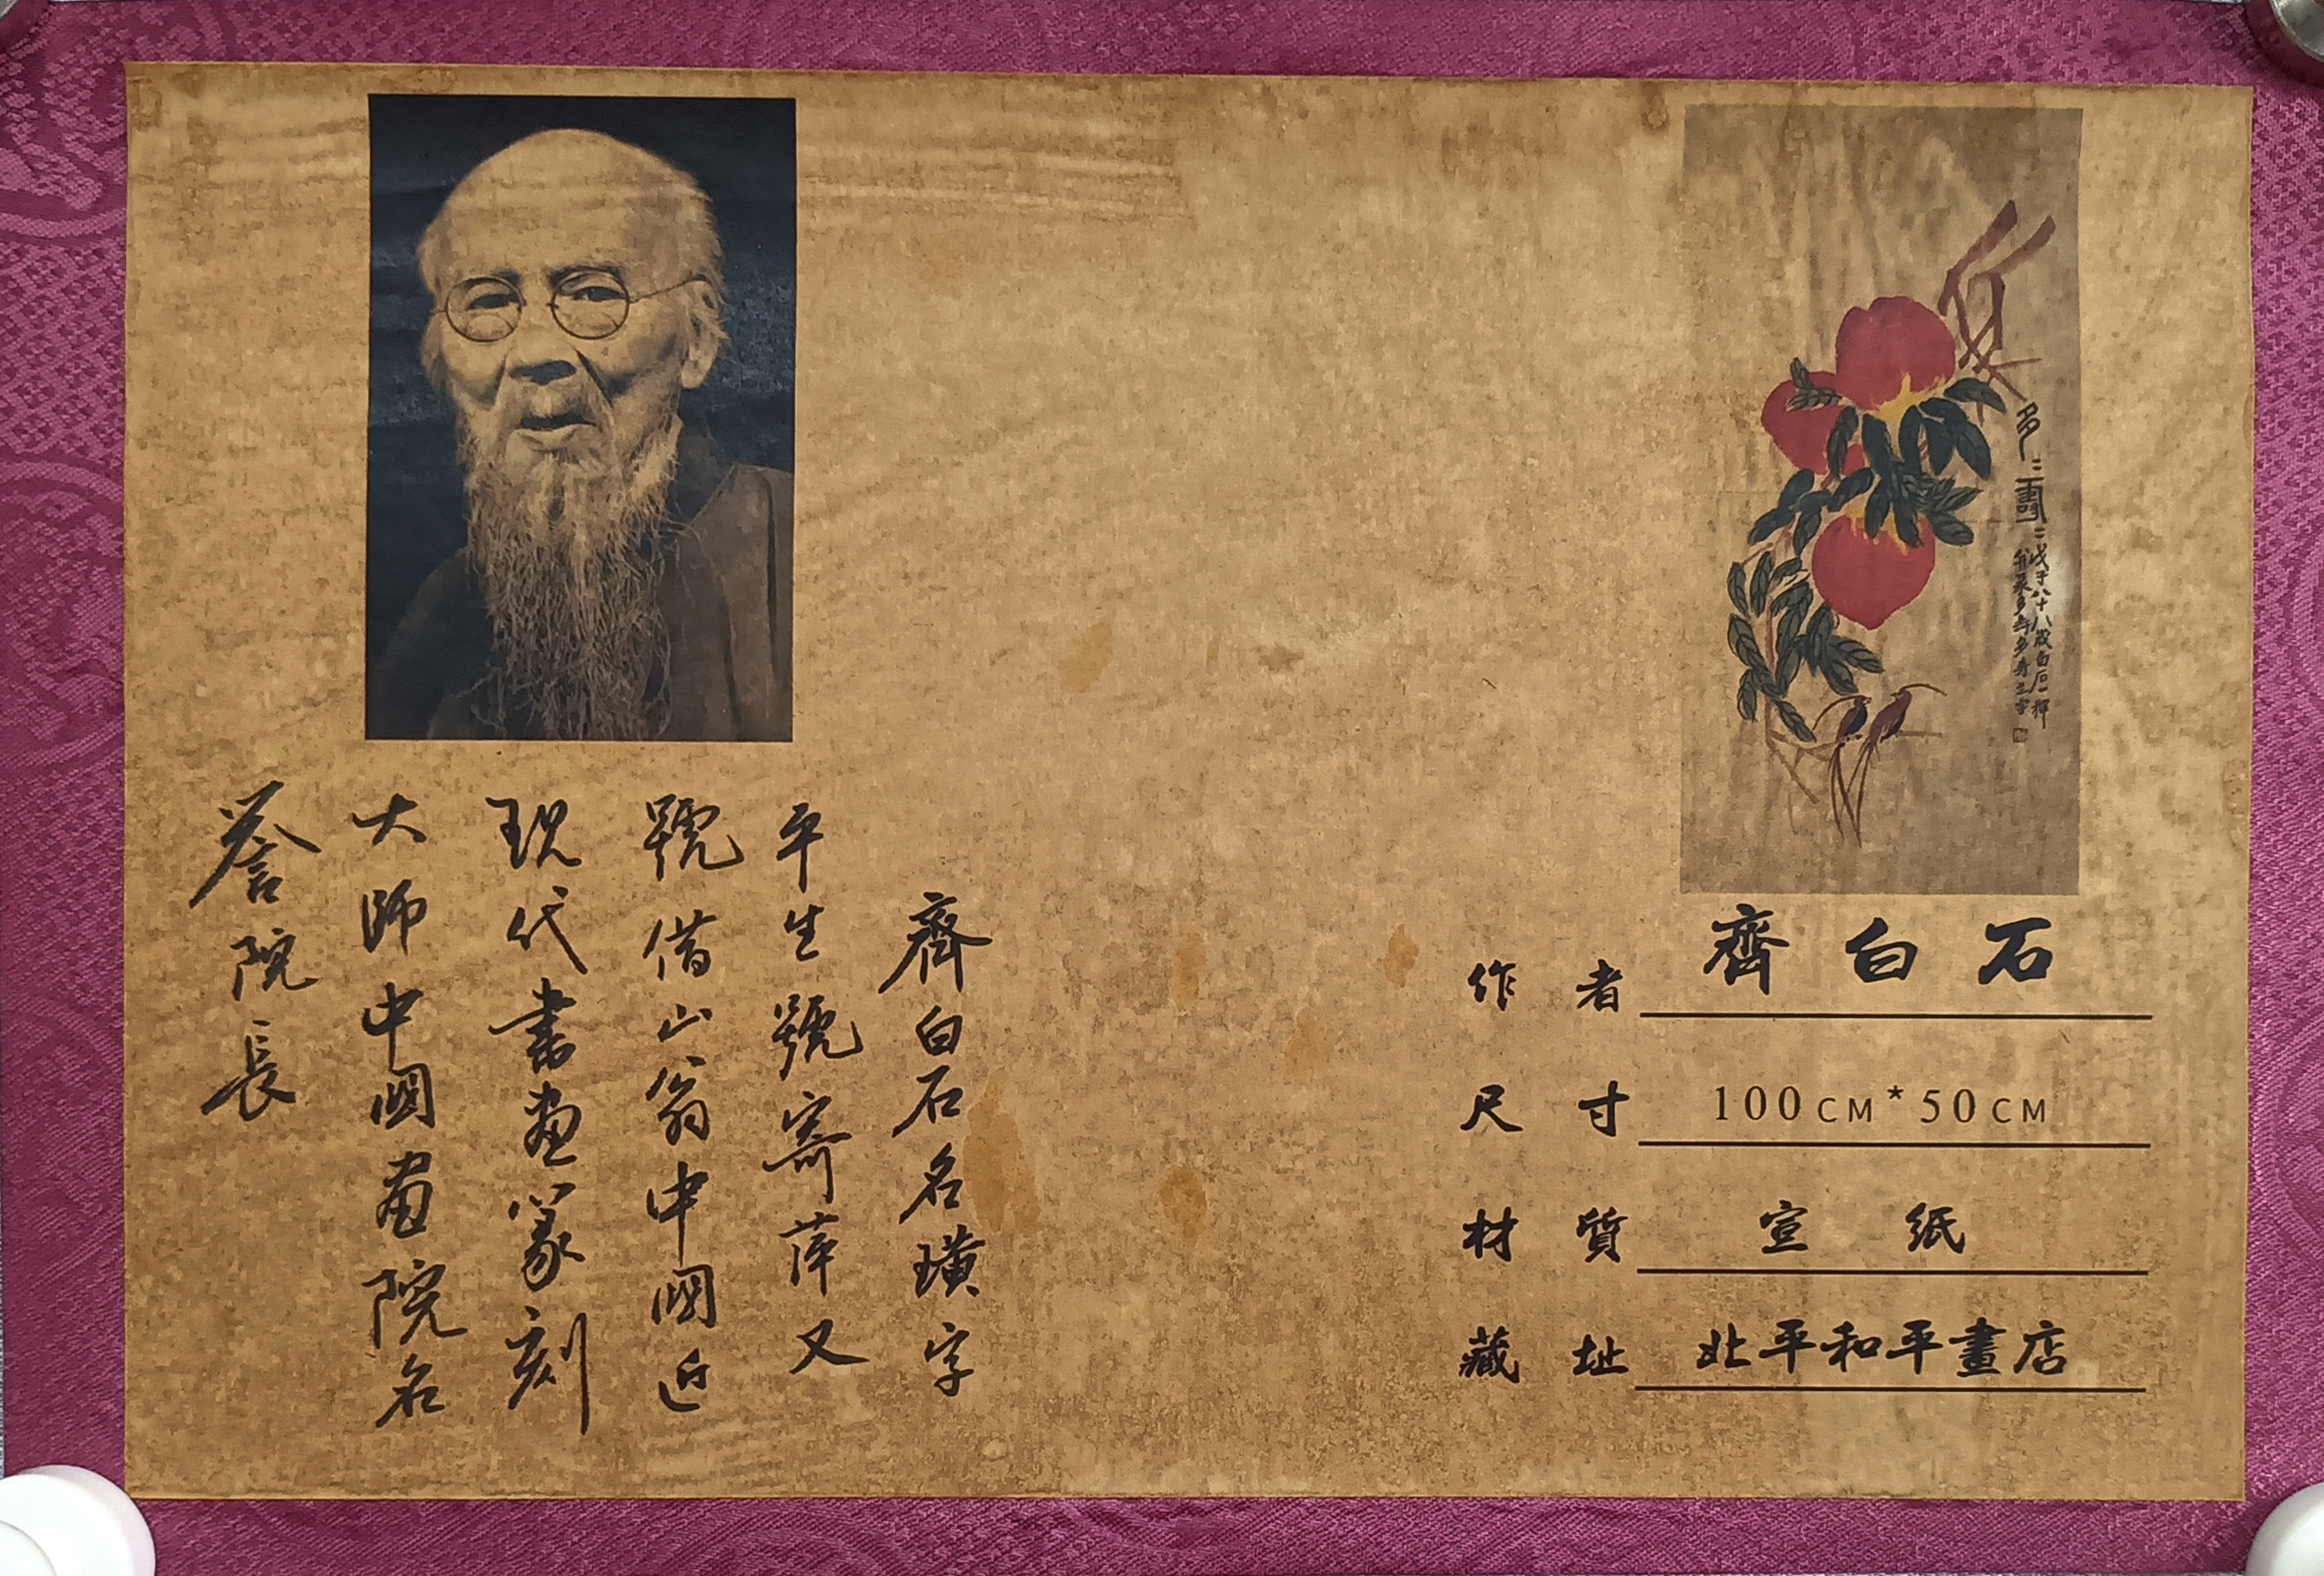 齊白石名璜字
平生號寄萍又
號借山翁中國近
現代書画篆刻
大師中國画院名
誉院長
多
壽
戊子八十八歲白石一揮
作者 齊白石
尺寸 100CM*50CM
材質 宣紙
藏址 北平和平畫店